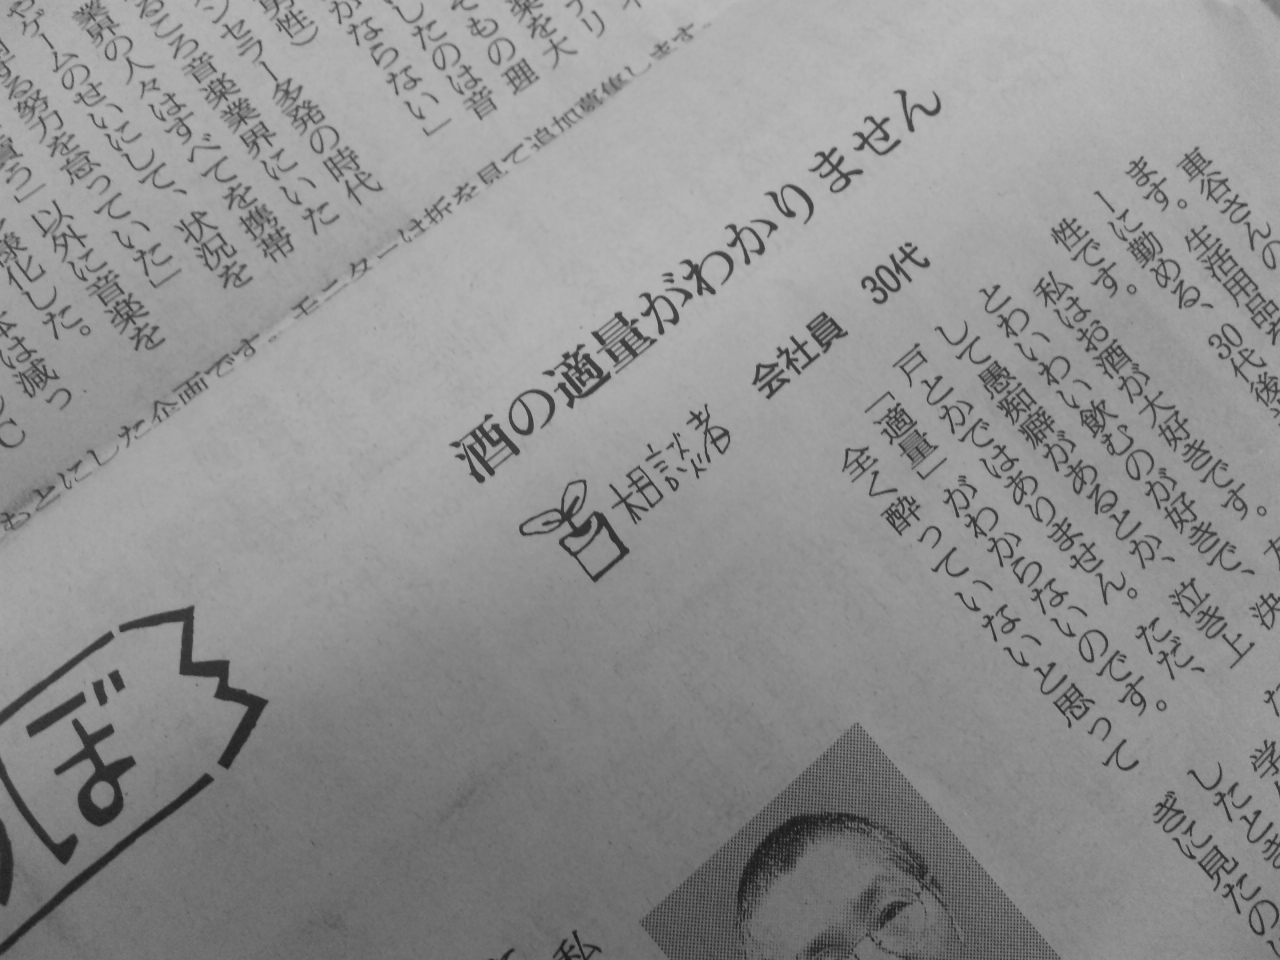 酒の適量がわかりません
相談者 会社員 30代
車谷さんの
ます。生活用品
ーに勤める、30代後
性です。
私はお酒が大好きです。
とわいわい飲むのが好きで、
して愚痴癖があるとか、泣き上
戸とかではありません。ただ、
「適量」がわからないのです。
全く酔っていないと思って
したとき
ぎに見たの
もとにした企画です。モニターは折を見て追加募集します。
がならない」
したのは音
ての理
楽を大
ンセラー多発の時代
ころ音楽業界にいた
業界の人々はすべてを携帯
ゲームのせいにして、状況を
する努力を怠っていた」
以外に音楽を
様化した。
は減っ
ぼ
私